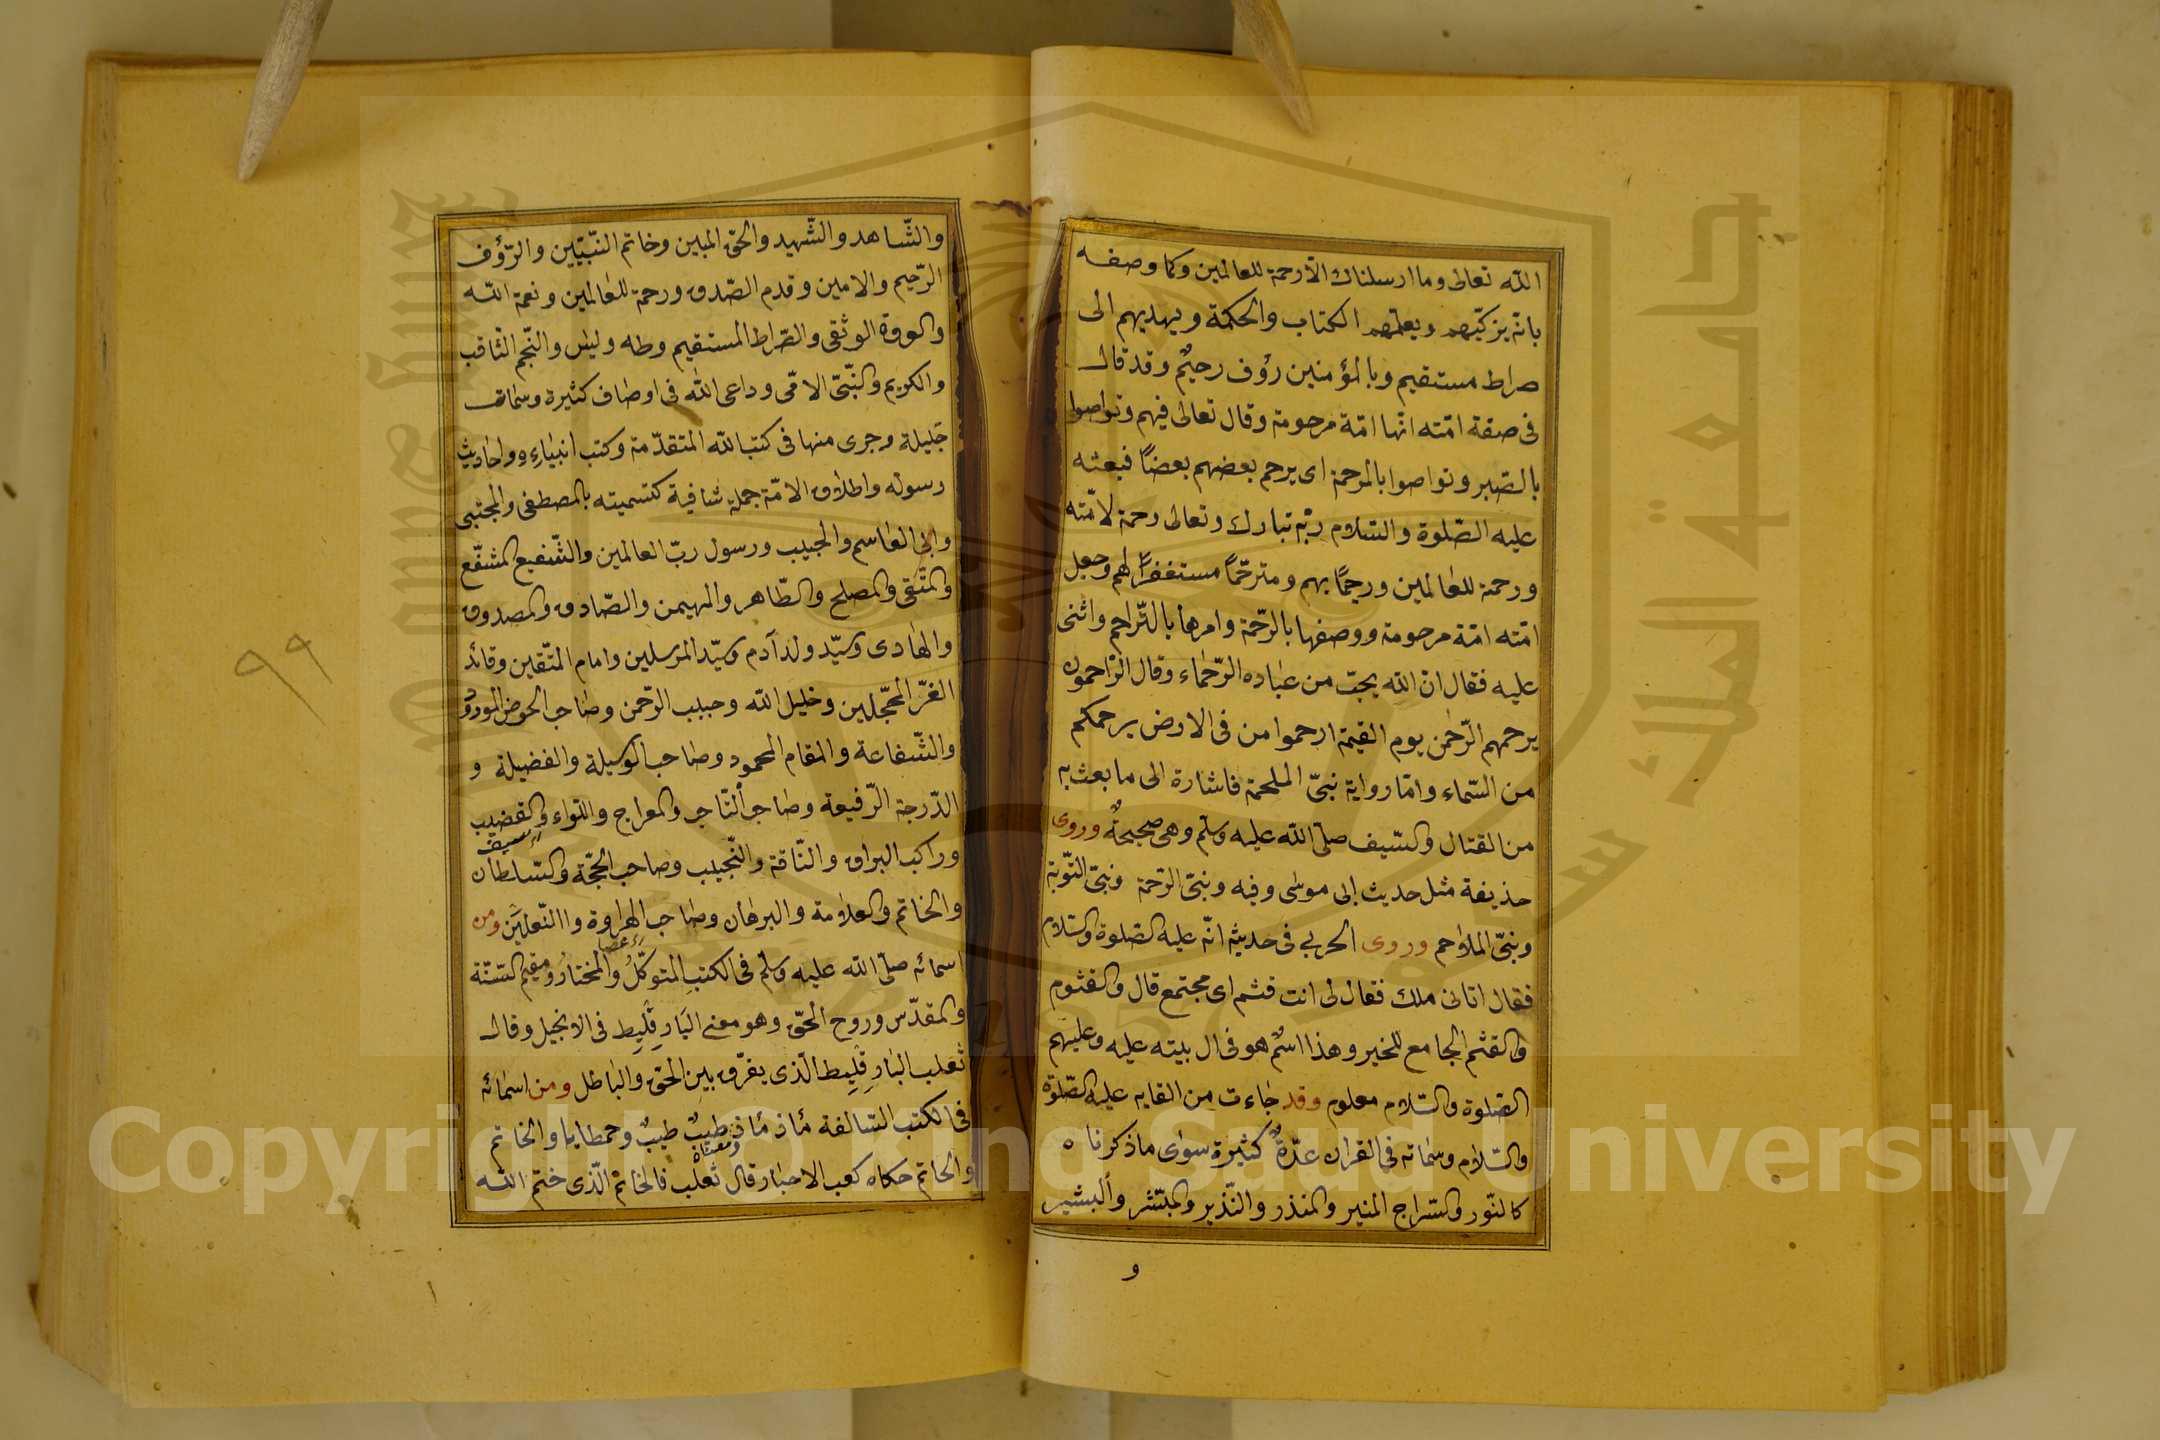 الله تعالى وما ارسلناك الا رحمة للعالمين وكما وصفه
بانه يزكيهم ويعلمهم الكتاب والحكمة ويهديهم الى
صراط مستقيم وبالمؤمنين رؤف رحيمٌ وقد قال
فى صفة امّته انّها امّة مرحومة وقال تعالى فيهم وتواصوا
بالصّبر وتواصوا بالمرحمة اى يرحم بعضهم بعضًا فبعثه
عليه الصّلوة والسّلام ربّه تبارك وتعالى رحمة لامّته
ورحمة للعالمين ورحيمًا بهم ومترحّمًا مستغفرًا لهم وجعل
امّته امّة مرحومة ووصفها بالرّحمة وامرها بالتّراحم واثنى
عليه فقال انّ الله يحبّ من عباده الرّحماء وقال الرّاحمون
يرحمهم الرّحمن يوم القيمة ارحموا من فى الارض يرحمكم
من السّماء وامّا رواية نبىّ الملحمة فاشارة الى ما بعث به
من القتال والسّيف صلّى الله عليه وسلّم وهى صحيحةٌ وروى
حذيفة مثل حديث ابى موسى وفيه ونبىّ الرّحمة ونبىّ التّوبة
ونبىّ الملاحم وروى الحربى فى حديثه انّه عليه الصّلوة والسّلام
فقال اتانى ملك فقال لى انت قثم اى مجتمع قال والقثوم
والقثم الجامع للخير وهذا اسمٌ هو فى ال بيته عليه وعليهم
الصّلوة والسّلام معلوم وقد جاءت من القابه عليه الصّلوة
والسّلام وسماته فى القران عدّةٌ كثيرة سوى ما ذكرناه
كالنّور والسّراج المنير والمنذر والنّذير والمبشّر والبشير
و
والشّاهد والشّهيد والحقّ المبين وخاتم النّبيّين والرّؤف
الرّحيم والامين وقدم الصّدق ورحمة للعالمين ونعمة الله
والعروة الوثقى والصّراط المستقيم وطه ويس والنّجم الثّاقب
والكريم والنّبىّ الامّى وداعى الله فى اوصاف كثيرة وسمات
جليلة وجرى منها فى كتب الله المتقدّمة وكتب انبياءه واحاديث
رسوله واطلاق الامّة جملة شافية كتسميته بالمصطفى والمجتبى
وابى القاسم والحبيب ورسول ربّ العالمين والشّفيع المشفّع
والمتّقى والمصلح والطّاهر والمهيمن والصّادق والمصدوق
والهادى وسيّد ولد آدم وسيّد المرسلين وامام المتّقين وقائد
الغرّ المحجّلين وخليل الله وحبيب الرّحمن وصاحب الحوض المورود
والشّفاعة والمقام المحمود وصاحب الوسيلة والفضيلة و
الدّرجة الرّفيعة وصاحب التّاج والمعراج واللّواء والقضيب
اى سيف
وراكب البراق والنّاقة والنّجيب وصاحب الحجّة والسّلطان
والخاتم والعلامة والبرهان وصاحب الهراوة والنّعلين ومن
اى عصا
اسمائه صلّى الله عليه وسلّم فى الكتب المتوكّلُ والمختارُ ومقيم السّنّة
والمقدّس وروح الحقّ وهو معنى البارقليط فى الانجيل وقال
ثعلب البارقليط الّذى يفرّق بين الحقّ والباطل ومن اسمائه
فى الكتب السّالفة ماذ ماذ ومعناه طيبٌ طيبٌ وحمطايا والخاتم
والحاتم حكاه كعب الاحبار قال ثعلب فالخاتم الّذى ختم الله
٩٩
جامعة الملك سعود
King Saud University
1957
Copyright © King Saud University